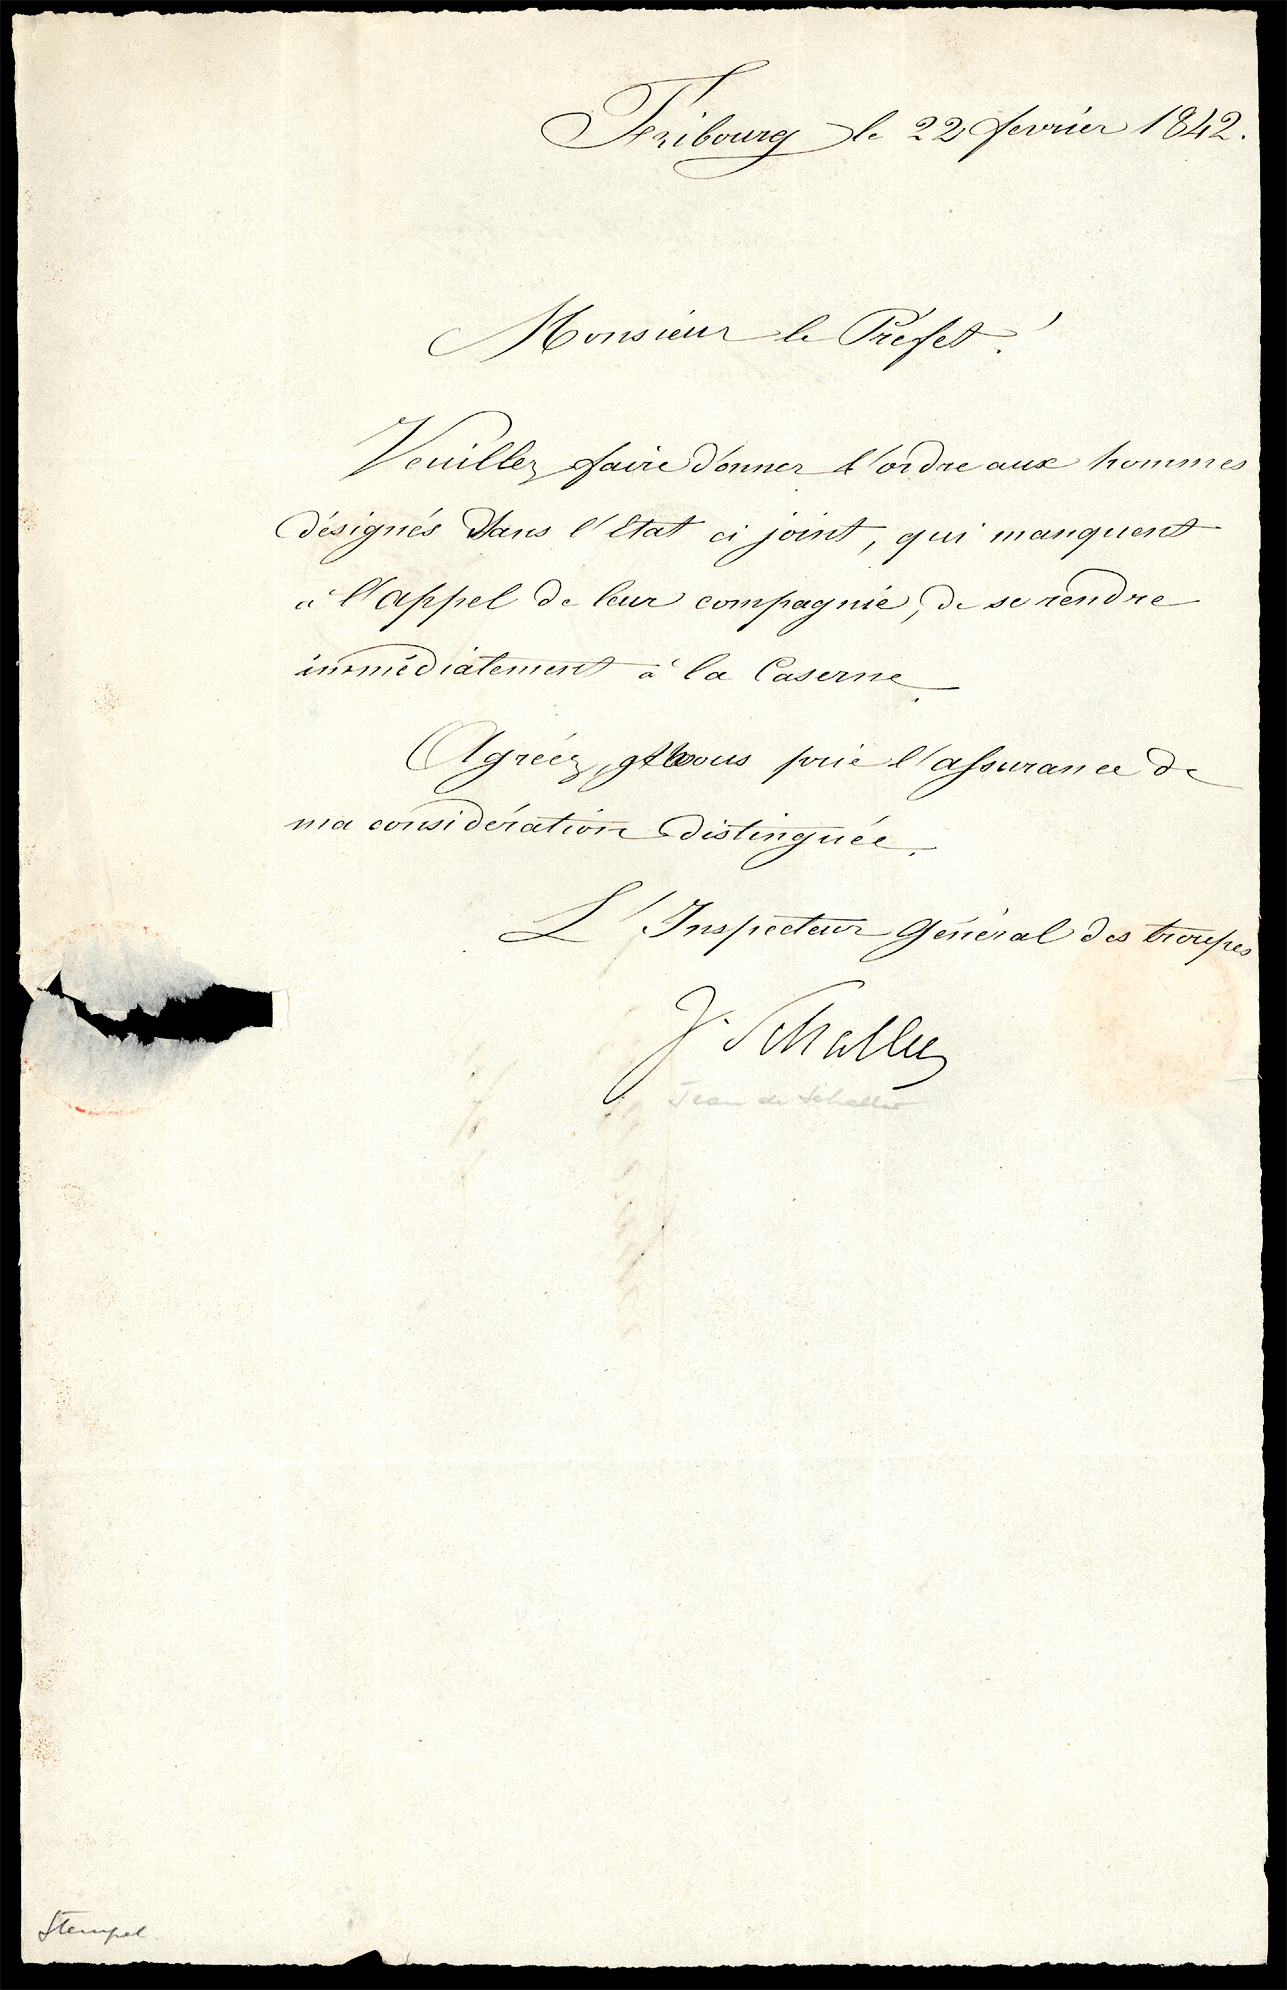 Fribourg le 22 fevrier 1842.
Monsieur le Préfet !
Veuillez faire donner l'ordre aux hommes
désignés dans l'Etat ci joint, qui manquent
à l'appel de leur compagnie, de se rendre
immédiatement à la Caserne.
Agréez, vous prie l'assurance de
ma considération distinguée.
L'Inspecteur Général des troupes
J. Schaller
Jean de Schaller
Stempel